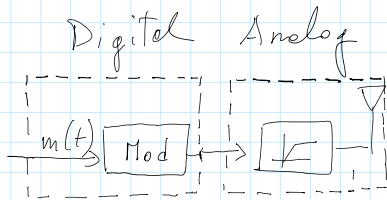 Digital Analog
m(t) Mod